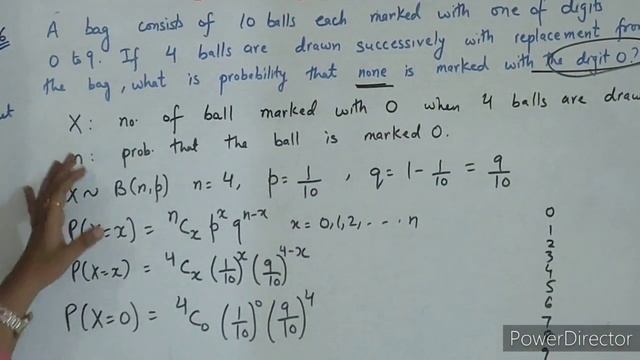 A bag consists of 10 balls each marked with one of digits
0 to 9. If 4 balls are drawn successively with replacement from
the bag, what is probability that none is marked with the digit 0?
X: no. of ball marked with 0 when 4 balls are draw
prob. that the ball is marked 0.
X ~ B(n,p) n = 4, p = 1/10, q = 1 - 1/10 = 9/10
P(X=x) = ⁿCₓ pˣ qⁿ⁻ˣ x = 0,1,2,.....n
P(X=x) = ⁴Cₓ (1/10)ˣ (9/10)⁴⁻ˣ
P(X=0) = ⁴C₀ (1/10)⁰ (9/10)⁴
0
1
2
3
4
5
6
7
8
9
PowerDirector